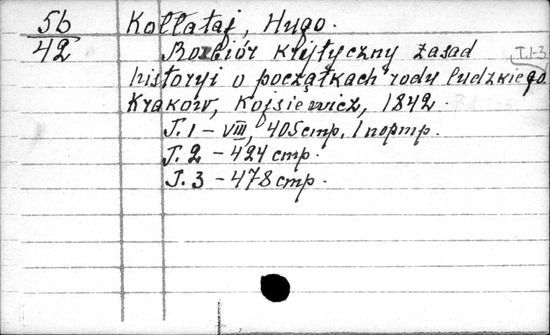 56 Kołłataj, Hugo.
42 Rozbiór krytyczny zasad T.1-3
historyi o początkach rodu ludzkiego.
Kraków, Kojsiewicz, 1842.
T. 1 – VIII, 405 стр., 1 портр.
T. 2 – 424 стр.
T. 3 – 478 стр.